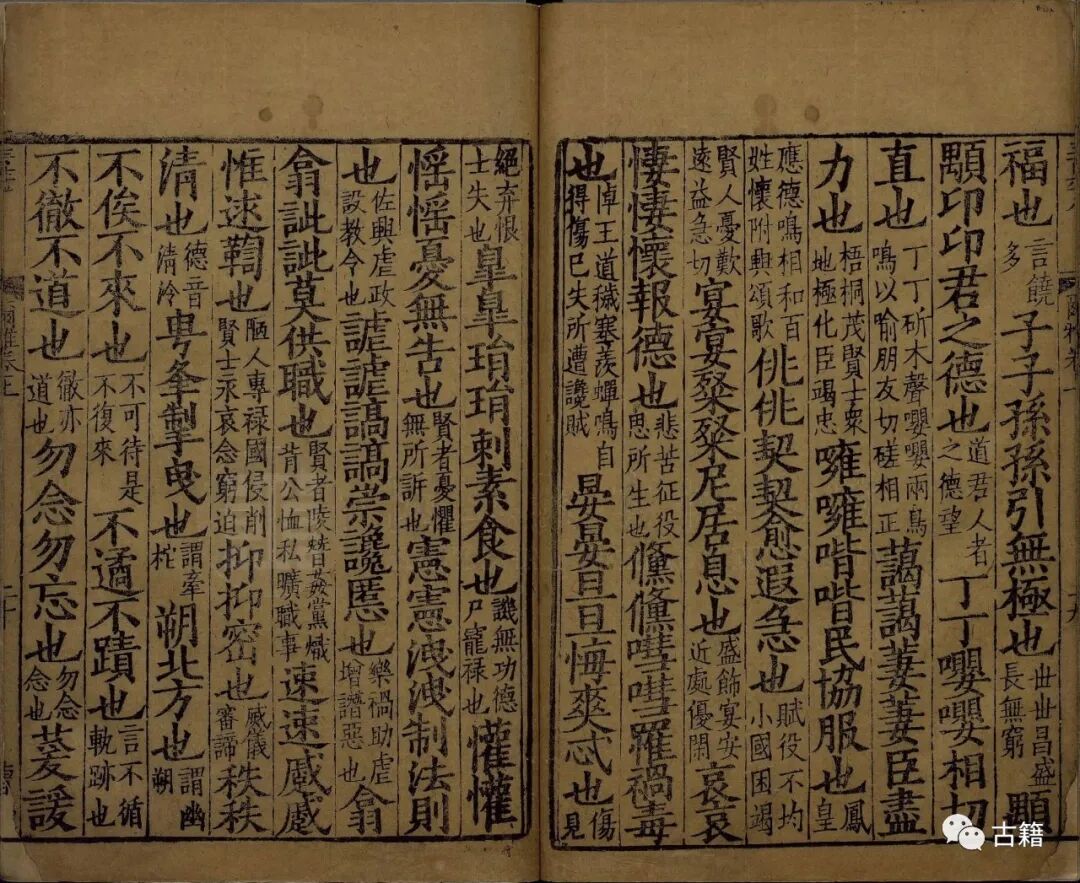 福也言饒多子子孫孫引無極也丗丗昌盛長無窮顒
顒卬卬君之德也道君人者之德望丁丁嚶嚶相切
直也丁丁斫木聲嚶嚶兩鳥鳴以喻朋友切磋相正藹藹萋萋臣盡
力也梧桐茂賢士衆地極化臣竭忠噰噰喈喈民協服也鳳皇
應德鳴相和百姓懷附興頌歌佻佻契契愈遐急也賦役不均小國困竭
賢人憂歎遠益急切宴宴粲粲尼居息也盛飾宴安近處優閑哀哀
悽悽懷報德也悲苦征役思所生也儵儵嘒嘒罹禍毒
也悼王道穢塞羨蟬鳴自得傷己失所遭讒賊晏晏旦旦悔爽忒也傷見
絕弃恨士失也皐皐琄琄刺素食也譏無功德尸寵祿也懽懽
愮愮憂無告也賢者憂懼無所訴也憲憲洩洩制法則
也佐興虐政設教令也謔謔謞謞崇讒慝也樂禍助虐增譖惡也翕
翕訿訿莫供職也賢者陵替姦黨熾背公恤私曠職事速速蹙蹙
惟逑鞫也陋人專祿國侵削賢士永哀念窮迫抑抑密也威儀審諦秩秩
清也德音清泠甹夆掣曳也謂牽拕朔北方也謂幽朔
不俟不來也不可待是不復來不遹不蹟也言不循軌跡也
不徹不道也徹亦道也勿念勿忘也勿念念也萲諼
古籍